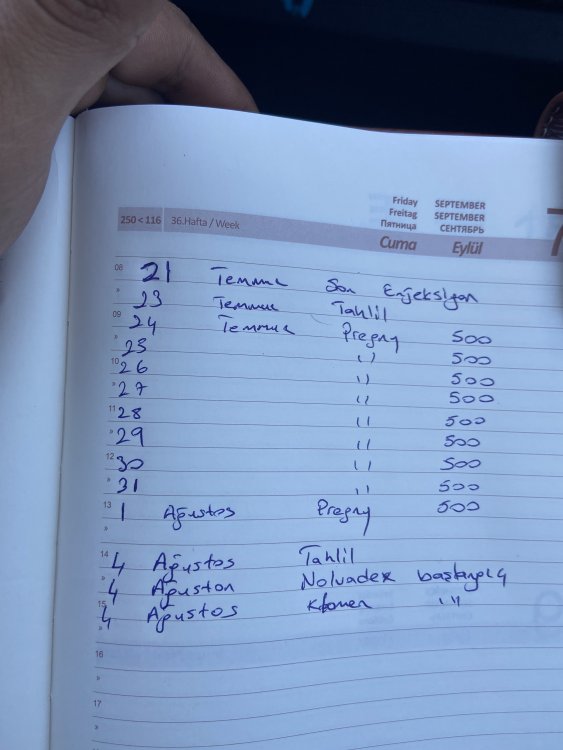 Friday SEPTEMBER
Freitag SEPTEMBER
Пятница СЕНТЯБРЬ
250 < 116 36.Hafta / Week Cuma Eylül 7
08 21 Temmuz Son Enjeksiyon
" 23 Temmuz Tahlil
09 24 Temmuz Pregny 500
" 25 " 500
10 26 " 500
" 27 " 500
11 28 " 500
" 29 " 500
12 30 " 500
" 31 " 500
13 1 Ağustos Pregny 500
"
14 4 Ağustos Tahlil
" 4 Ağuston Nolvadex başlangıç
15 4 Ağustos Klomen "
"
16
"
17
"